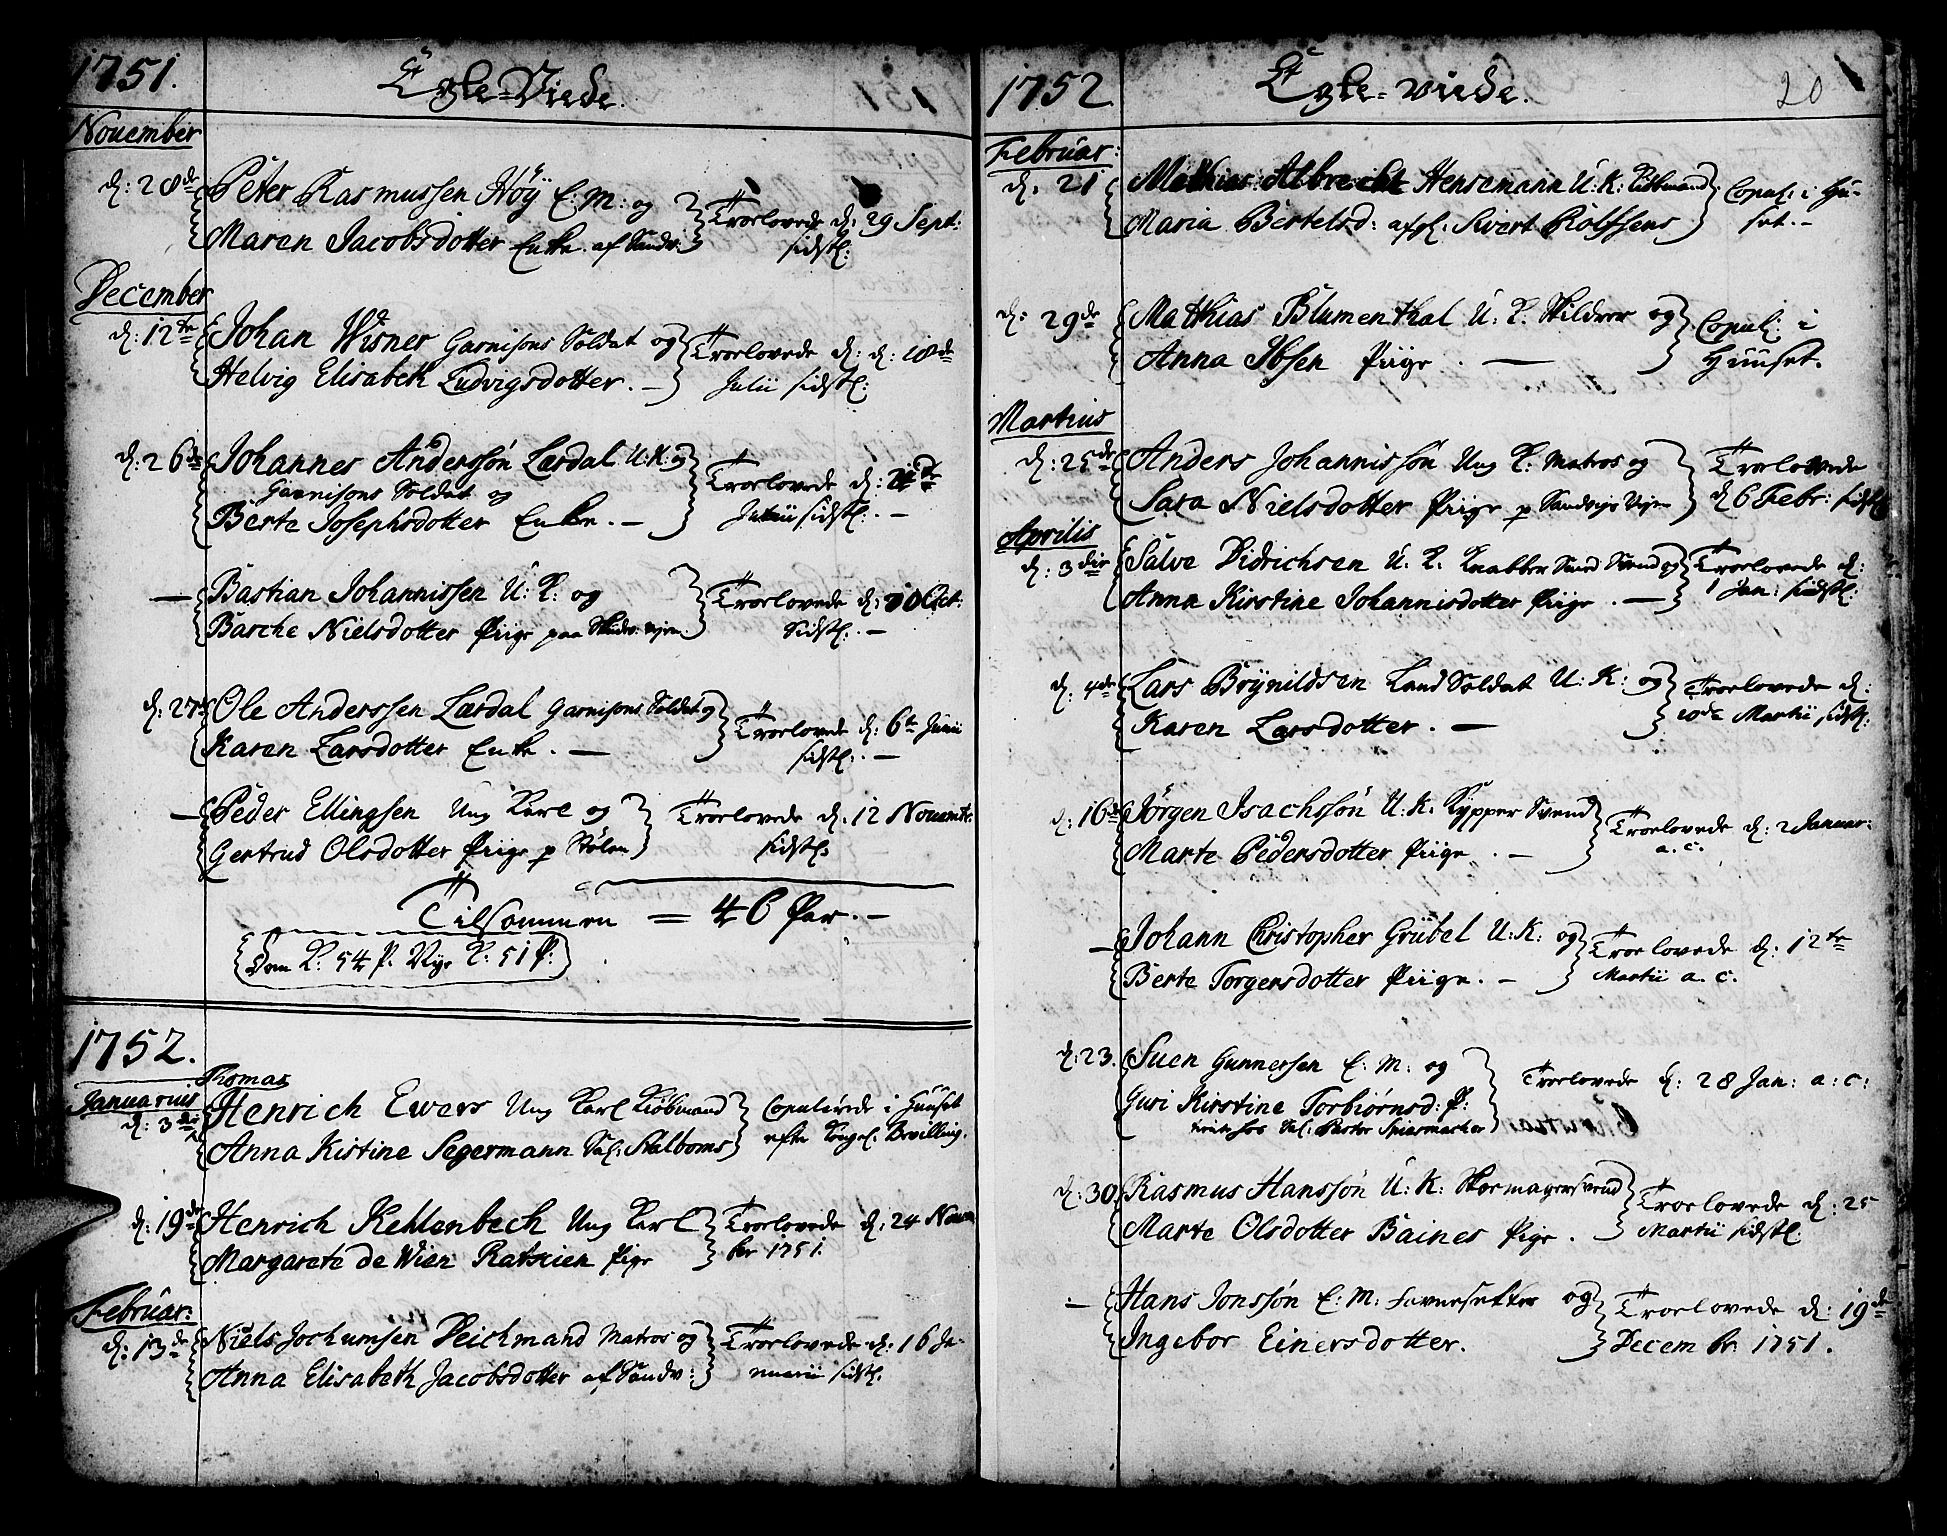 1751.
Egte-Viede.
November
d: 28de Peter Rasmussen Höÿ E: M: og
Maren Jacobsdotter Enke af Sandv:
Troelovede d: 29 Sept:
sidstl:
December
d: 12te Johan Wisner Garnisons Soldat og
Helvig Elisabeth Ludvigsdotter. —
Troelovede d: d: 18de
Julii sidstl:
d: 26de Johannes Anderssøn Lærdal U: K:
Garnisons Soldat og
Berte Josephsdotter Enke. —
Troelovede d:
Julii sidstl: —
— Bastian Johannissen U: K: og
Barche Nielsdotter Piige paa Sandv: vejen
Troelovede d: 10 Oct:
Sidstl: —
d: 27de Ole Anderssen Lærdal Garnisons Soldat og
Karen Larsdotter Enke. —
Troelovede d: 6te Junii
sidstl: —
— Peder Ellingsen Ung Karl og
Gertrud Olsdotter Piige p Stølen
Troelovede d. 12 Novembr:
sidstl:
Tilsammen = 46 Par. —
Dom K: 54 P. Nye K: 51 P:
1752.
Januarius
Thomas
d: 3die Henrich Ewers Ung Karl Kiøbmand
Anna Kistine Segermann Sal: Stalboms
Copulerede i Huuset
efter Kongel: Bevilling.
d: 19de Henrich Kehlenbech Ung Karl
Margareta de Wien Ratskien Pige
Troelovede d: 24 Novem
ber 1751.
Februar:
d: 13de Niels Jochumsen Deichmand Matros og
Anna Elisabeth Jacobsdotter af Sandv:
Troelovede d: 16 Ja-
nuarii sidstl.
1752
Egte-viede.
20
Februar:
d. 21 Mathias Albrecht Hensemann U: K: Kiøbmand
Maria Bertelsd: afgl. Sivert Rolfsens
Copul: i Hu-
set. —
d: 29de Mathias Blumenthal U: K. Skildrer og
Anna Ibsen Piige. —
Copul: i
Huuset.
Martius
d: 25de Anders Johannissøn Ung K: Matros og
Sara Nielsdotter Piige p Sandvigs Vejen
Troelovede
d 6 Febr: sidstl
Aprilis
d: 3die Salve Didrichsen U: K. Knabber Smed Svend og
Anna Kirstine Johannisdotter Piige. —
Troelovede d:
1 Jan: sidstl:
d: 4de Lars Brÿnildsen Land Soldat U: K: og
Karen Larsdotter. —
Troelovede d:
10de Martii sidstl:
d: 16de Jørgen Isachssøn U: K. Kypper Svend
Marte Pedersdotter Piige. —
Troelovede d: 2 Januar:
a. c.
— Johann Christopher Grübel U: K: og
Berte Torgersdotter Piige. —
Troelovede d: 12te
Martii a. c.
d: 23. Suen Gunnersen E: M: og
Guri Kirstine Torbiørnsd: P:
Troelovede d: 28 Jan: a: c:
d: 30. Rasmus Hanssøn U: K: Skoemagersvend
Marte Olsdotter Baines Pige.
Troelovede d: 25
Martii sidstl:
— Hans Jonssøn E: M: Favnesetter og
Ingebor Einersdotter.
Troelovede d: 19de
Decembr: 1751.